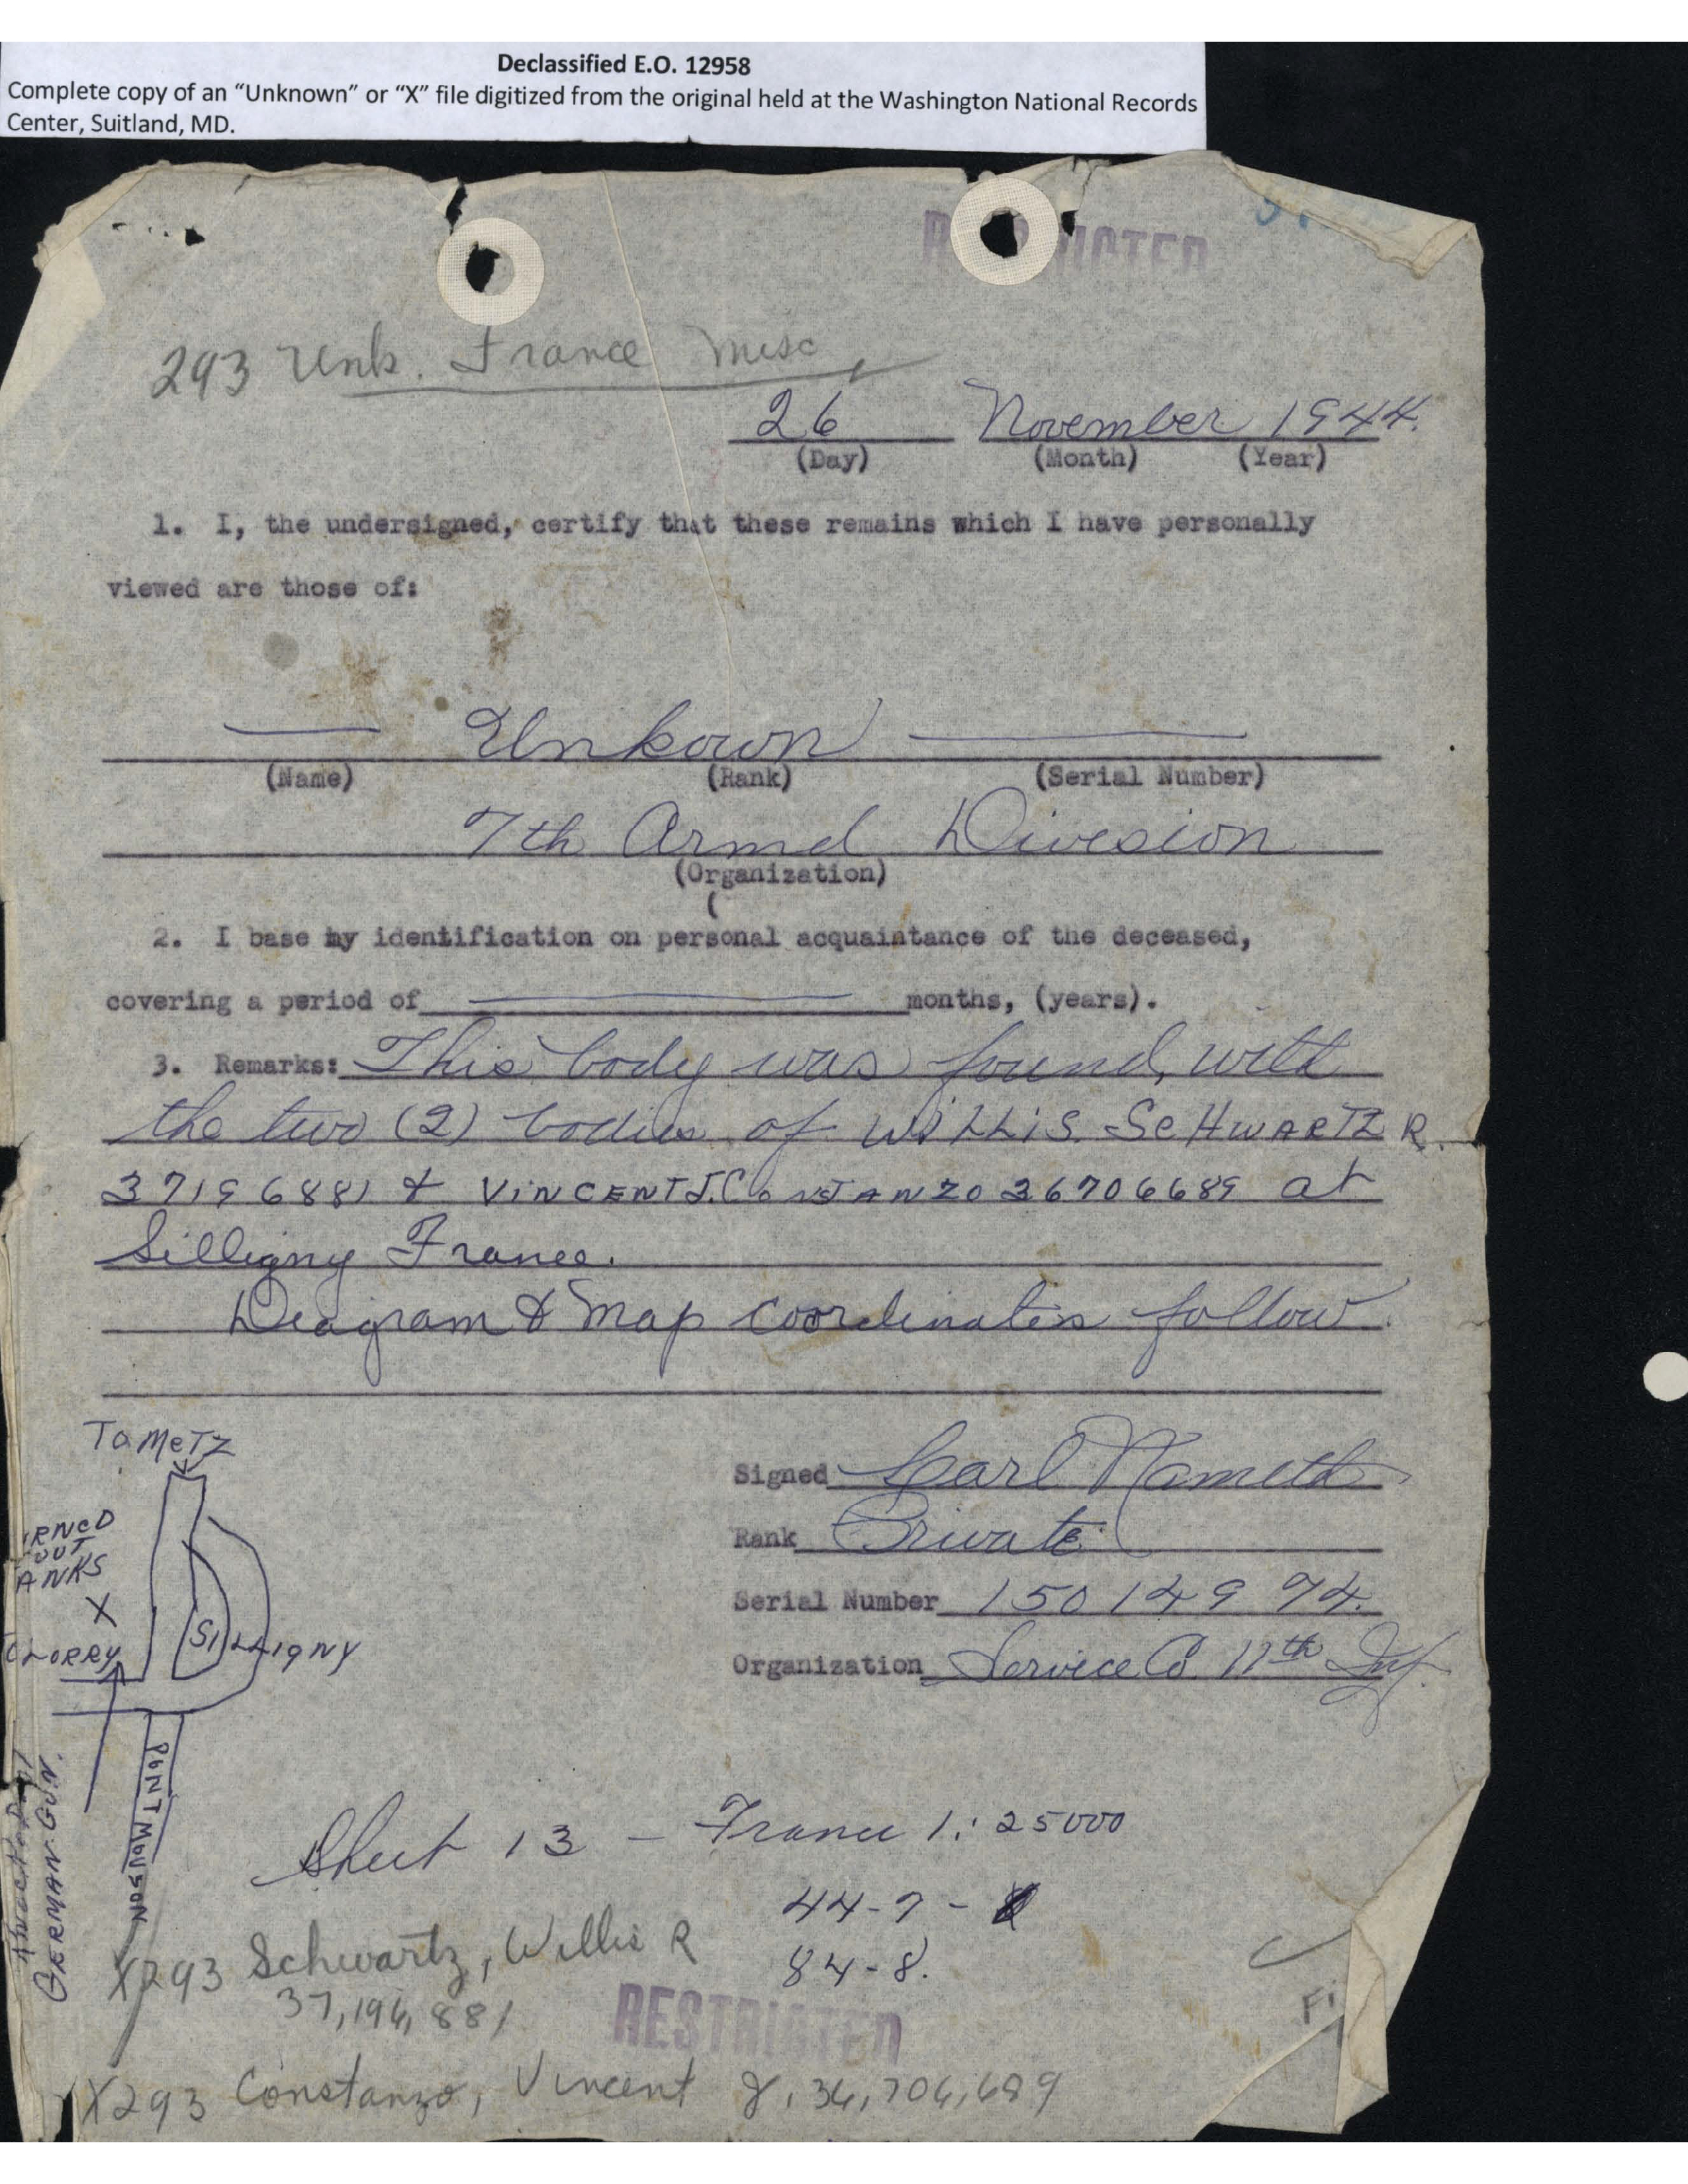 Declassified E.O. 12958
Complete copy of an “Unknown” or “X” file digitized from the original held at the Washington National Records
Center, Suitland, MD.
293 Unk. France Misc
26 November 1944.
(Day) (Month) (Year)
1. I, the undersigned, certify that these remains which I have personally
viewed are those of:
Unkown
(Name) (Rank) (Serial Number)
7th Armd Division
(Organization)
(
2. I base my identification on personal acquaintance of the deceased,
covering a period of months, (years).
3. Remarks: This body was found, with
the two (2) bodies of WILLIS SCHWARTZ R.
37196881 & VINCENT J. CONSTANZO 36706689 at
Silligny France.
Diagram & Map coordinates follow.
TO METZ
Signed Carl Nameth
Rank Private
Serial Number 15014974.
Organization Service Co 11th Inf.
IRNED
OUT
ANKS
X
CLORRY
SILLIGNY
PONT MOUSON
GERMAN GUN.
Sheet 13 - France 1:25000
44-7 -
84-8.
X293 Schwartz, Willis R
37,196,881
RESTRICTED
X293 Constanzo, Vincent J, 36,706,689